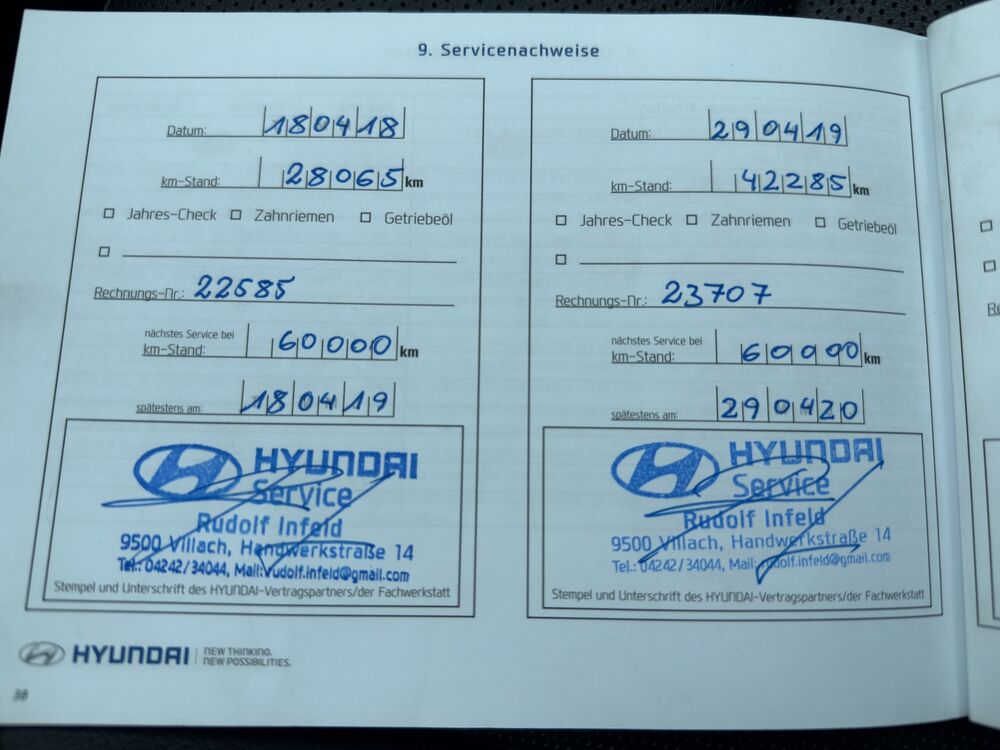 9. Servicenachweise
Datum: 180418
km-Stand: 28065 km
Jahres-Check Zahnriemen Getriebeöl
Rechnungs-Nr.: 22585
nächstes Service bei
km-Stand: 60000 km
spätestens am: 180419
HYUNDAI
Service
Rudolf Infeld
9500 Villach, Handwerkstraße 14
Tel.: 04242/34044, Mail: rudolf.infeld@gmail.com
Stempel und Unterschrift des HYUNDAI-Vertragspartners/der Fachwerkstatt
Datum: 290419
km-Stand: 42285 km
Jahres-Check Zahnriemen Getriebeöl
Rechnungs-Nr.: 23707
nächstes Service bei
km-Stand: 60000 km
spätestens am: 290420
HYUNDAI
Service
Rudolf Infeld
9500 Villach, Handwerkstraße 14
Tel.: 04242/34044, Mail: rudolf.infeld@gmail.com
Stempel und Unterschrift des HYUNDAI-Vertragspartners/der Fachwerkstatt
HYUNDAI
NEW THINKING.
NEW POSSIBILITIES.
38